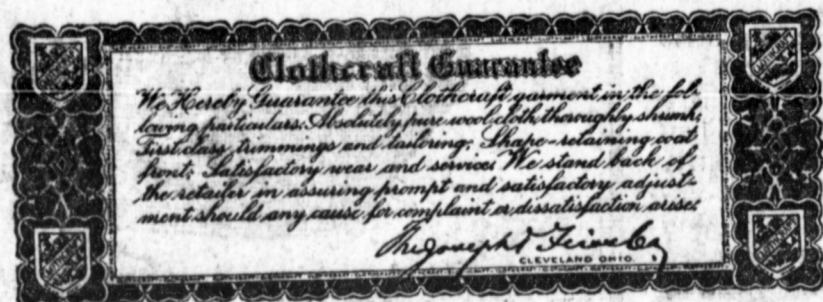 Clothcraft Guarantee
We Hereby Guarantee this Clothcraft garment in the fol-
lowing particulars: Absolutely pure wool cloth, thoroughly shrunk;
First class trimmings and tailoring; Shape-retaining coat
front; Satisfactory wear and service; We stand back of
the retailer in assuring prompt and satisfactory adjust-
ment should any cause for complaint or dissatisfaction arise:
The Joseph & Feiss Co
CLEVELAND OHIO.